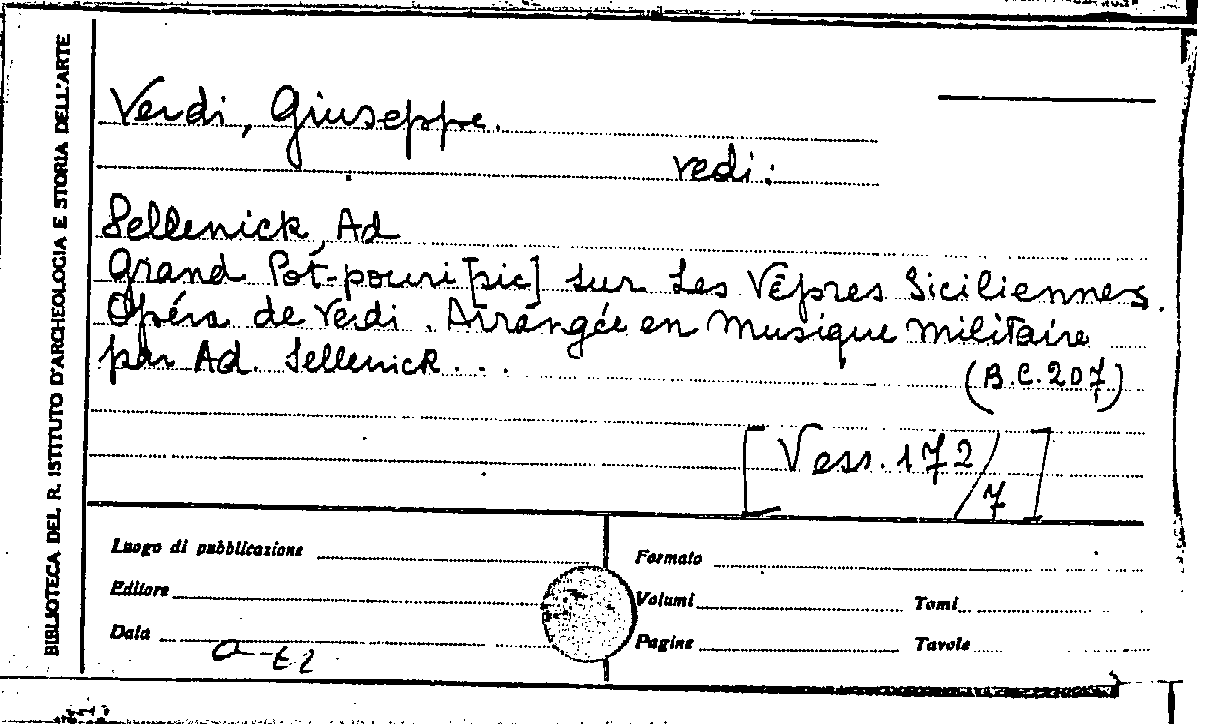 BIBLIOTECA DEL R. ISTITUTO D'ARCHEOLOGIA E STORIA DELL'ARTE
Verdi, Giuseppe.
vedi:
Sellenick, Ad
Grand Pot-pouri [sic] sur Les Vêpres Siciliennes.
Opéra de Verdi. Arrangée en musique militaire
par Ad. Sellenick...
(B.C. 207)
[Vess. 172/7]
Luogo di pubblicazione
Editore
Data
Formato
Volumi Tomi
Pagine Tavole